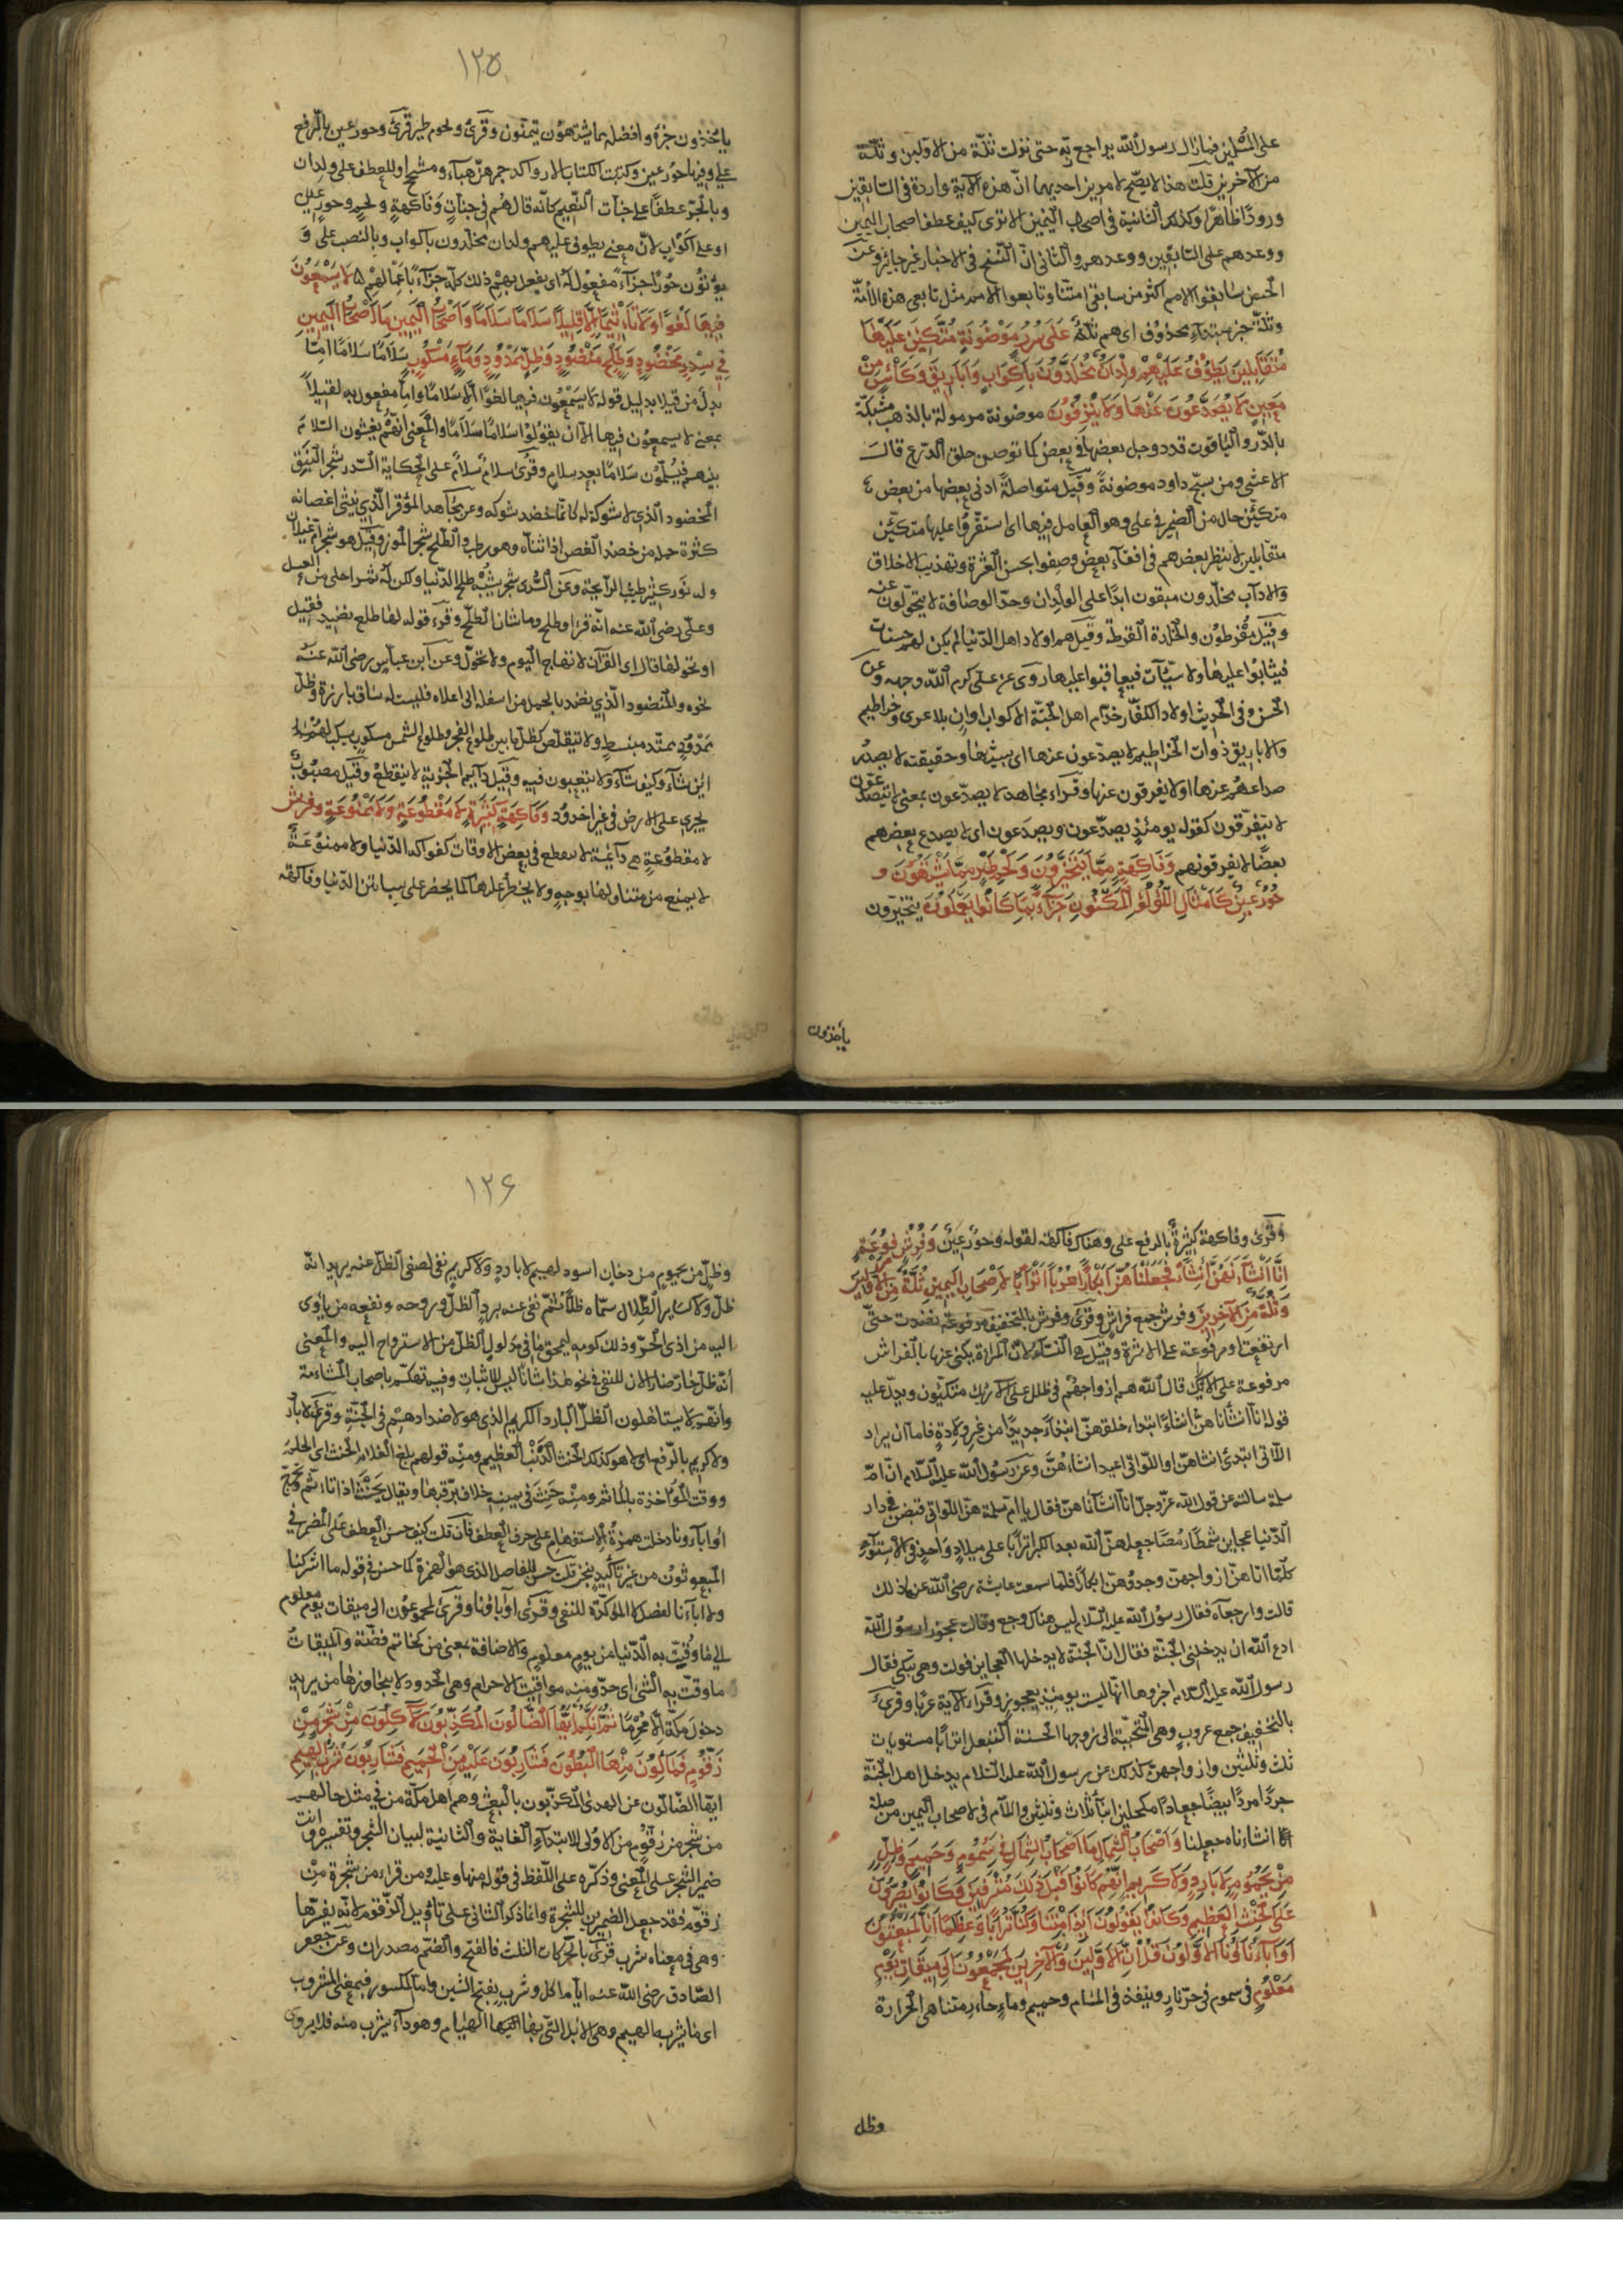 على المسلمين فما زال رسول الله يراجع ربه حتى نزلت ثلة من الاولين وثلة
من الآخرين قلت هذا لا يصح لامرين احديهما ان هذه الآية واردة في السابقين
ورودا ظاهرا وكذلك الثانية في اصحاب اليمين الا ترى كيف عطف اصحاب اليمين
ووعدهم على السابقين ووعدهم والثاني ان النسخ في الاخبار غير جائز وعن
الحسن سابقوا الامم اكثر من سابقي امتنا وتابعوا الامم مثل تابعي هذه الامة
وثلة خبر مبتداء محذوف اى هم ثلة عَلَى سُرُرٍ مَوْضُونَةٍ مُتَّكِئِينَ عَلَيْهَا
مُتَقَابِلِينَ يَطُوفُ عَلَيْهِمْ وِلْدَانٌ مُخَلَّدُونَ بِأَكْوَابٍ وَأَبَارِيقَ وَكَأْسٍ مِنْ
مَعِينٍ لَا يُصَدَّعُونَ عَنْهَا وَلَا يُنْزِفُونَ موضونة مرمولة بالذهب مشبكة
بالدر والياقوت قد دوخل بعضها في بعض كما توضن حلق الدرع قال
الاعشى ومن نسج داود موضونة وقيل متواصلة ادنى بعضها من بعض
متكئين حال من الضمير في على وهو العامل فيها اى استقروا عليها متكئين
متقابلين لا ينظر بعضهم في اقفاء بعض وصفوا بحسن العشرة وتهذيب الاخلاق
والآداب مخلدون مبقون ابدا على الولدان وحد الوصافة لا يتحولون عنه
وقيل مقرطون والخلدة القرط وقيل هم اولاد اهل الدنيا لم يكن لهم حسنات
فيثابوا عليها ولا سيئات فيعاقبوا عليها روى عن على كرم الله وجهه وعن
الحسن وفي الحديث اولاد الكفار خدام اهل الجنة الاكواب اوان بلا عرى وخراطيم
والاباريق ذوات الخراطيم لا يصدعون عنها اى بسببها وحقيقته لا يصدر
صداعهم عنها او لا يفرقون عنها وقراء مجاهد لا يصدعون بمعنى لا يتصدعون
لا يتفرقون كقوله يومئذ يصدعون ويصدعون اى لا يصدع بعضهم
بعضا لا يفرقونهم وَفَاكِهَةٍ مِمَّا يَتَخَيَّرُونَ وَلَحْمِ طَيْرٍ مِمَّا يَشْتَهُونَ وَ
حُورٌ عِينٌ كَأَمْثَالِ اللُّؤْلُؤِ الْمَكْنُونِ جَزَاءً بِمَا كَانُوا يَعْمَلُونَ يتخيرون
يأخذون
١٢٥
يأخذون خيره وافضله ما يشتهون يتمنون وقرئ ولحوم طير قرئ وحور عين بالرفع
على وفيها حور عين وكبيت الكتاب الا رواكد جمرهن هباء ومشجج او للعطف على ولدان
وبالجر عطفا على جنات النعيم كانه قال هم في جنات وفاكهة ولحم وحور عين
او على اكواب لان معنى يطوف عليهم ولدان مخلدون باكواب وبالنصب على و
يؤتون حورا جزاء مفعول له اى يفعل بهم ذلك كله جزاء باعمالهم لَا يَسْمَعُونَ
فِيهَا لَغْوًا وَلَا تَأْثِيمًا إِلَّا قِيلًا سَلَامًا سَلَامًا وَأَصْحَابُ الْيَمِينِ مَا أَصْحَابُ الْيَمِينِ
فِي سِدْرٍ مَخْضُودٍ وَطَلْحٍ مَنْضُودٍ وَظِلٍّ مَمْدُودٍ وَمَاءٍ مَسْكُوبٍ سلاما سلاما اما
بدل من قيلا بدليل قوله لا يسمعون فيها لغوا الا سلاما واما مفعول به لقيلا
بمعنى لا يسمعون فيها الا ان يقولوا سلاما سلاما والمعنى انهم يفشون السلام
بينهم فيسلمون سلاما بعد سلام وقرئ سلام سلام على الحكاية السدر شجر النبق
المخضود الذى لا شوك له كانما خضد شوكه وعن مجاهد الموقر الذى يثنى اغصانه
كثرة حمله من خضد الغصن اذا ثناه وهو رطب والطلح شجر الموز وقيل هو شجر ام غيلان
وله نور كثير طيب الرايحة وعن السدى شجر يشبه طلح الدنيا ولكن له ثمر احلى من العسل
وعلى رضى الله عنه انه قرا وطلع وما شان الطلح وقرء قوله لها طلع نضيد فقيل
او نحولها قال اى القرآن لا تهاج اليوم ولا تحول وعن ابن عباس رضى الله عنه
نحوه والمنضود الذى نضد بالحمل من اسفله الى اعلاه فليست له ساق بارزة وظل
ممدود ممتد منبسط ولا يتقلص كظل ما بين طلوع الفجر وطلوع الشمس مسكوب يسكب لهم
اين شاء وكيف شاء ولا يتعبون فيه وقيل دايم الجرية لا ينقطع وقيل مصبوب
يجرى على الارض في غير اخدود وَفَاكِهَةٍ كَثِيرَةٍ لَا مَقْطُوعَةٍ وَلَا مَمْنُوعَةٍ وَفُرُشٍ
لا مقطوعة هى دائمة لا ينقطع في بعض الاوقات كفواكه الدنيا ولا ممنوعة
لا يمنع من متناولها بوجه ولا يحظر عليها كما يحظر على بساتين الدنيا وفاكهة
وقرئ وفاكهة كثيرة بالرفع على وهناك فاكهة لقوله وحور عين وَفُرُشٍ مَرْفُوعَةٍ
إِنَّا أَنْشَأْنَاهُنَّ إِنْشَاءً فَجَعَلْنَاهُنَّ أَبْكَارًا عُرُبًا أَتْرَابًا لِأَصْحَابِ الْيَمِينِ ثُلَّةٌ مِنَ الْأَوَّلِينَ
وَثُلَّةٌ مِنَ الْآخِرِينَ وفرش جمع فراش وقرئ وفرش بالتخفيف مرفوعة نضدت حتى
ارتفعت او مرفوعة على الاسرة وقيل هى النساء لان المراة يكنى عنها بالفراش
مرفوعة على الارائك قال الله هم وازواجهم في ظلل على الارائك متكئون ويدل عليه
قوله انا انشاناهن انشاء ابتداء خلقهن ابتداء جديدا من غير ولادة فاما ان يراد
اللاتى ابتدئ انشاهن او اللواتى اعيد انشاءهن وعن رسول الله عليه السلام ان ام
سلمة سالته عن قول الله عز وجل انا انشاناهن فقال يا ام سلمة هن اللواتى قبضن في دار
الدنيا عجايز شمطا رمصا جعلهن الله بعد الكبر اترابا على ميلاد واحد في الاستواء
كلما اتاهن ازواجهن وجدوهن ابكارا فلما سمعت عايشة رضى الله عنها ذلك
قالت واوجعاه فقال رسول الله عليه السلام ليس هناك وجع وقالت عجوز لرسول الله
ادع الله ان يدخلنى الجنة فقال ان الجنة لا يدخلها العجايز فولت وهى تبكى فقال
رسول الله عليه السلام اخبروها انها ليست يومئذ بعجوز وقراء الآية عربا وقرئ
بالتخفيف جمع عروب وهى المتحببة الى زوجها الحسنة التبعل اترابا مستويات
ثلث وثلثين وازواجهن كذلك عن رسول الله عليه السلام يدخل اهل الجنة
جردا مردا بيضا جعادا مكحلين ابناء ثلاث وثلثين واللام في لاصحاب اليمين من صلة
انشاناه جعلنا وَأَصْحَابُ الشِّمَالِ مَا أَصْحَابُ الشِّمَالِ فِي سَمُومٍ وَحَمِيمٍ وَظِلٍّ
مِنْ يَحْمُومٍ لَا بَارِدٍ وَلَا كَرِيمٍ إِنَّهُمْ كَانُوا قَبْلَ ذَلِكَ مُتْرَفِينَ وَكَانُوا يُصِرُّونَ
عَلَى الْحِنْثِ الْعَظِيمِ وَكَانُوا يَقُولُونَ أَئِذَا مِتْنَا وَكُنَّا تُرَابًا وَعِظَامًا أَئِنَّا لَمَبْعُوثُونَ
أَوَآبَاؤُنَا الْأَوَّلُونَ قُلْ إِنَّ الْأَوَّلِينَ وَالْآخِرِينَ لَمَجْمُوعُونَ إِلَى مِيقَاتِ يَوْمٍ
مَعْلُومٍ في سموم في حر نار وينفذ في المسام وحميم وماء حار متناهى الحرارة
وظل
١٢۶
وظل من يحموم من دخان اسود لهيم لا بارد ولا كريم نفى لصفى الظل عنه يريد انه
ظل ولا كساير الظلال سماه ظلا ثم نفى عنه برد الظل وروحه ونفعه من ياوى
اليه من اذى الحر وذلك كرمه ليمحق ما في مدلول الظل من الاسترواح اليه والمعنى
انه ظل حار ضار الا ان للنفى في نحو هذا شانا ليس للاثبات وفيه تهكم باصحاب المشاءمة
وانهم لا يستاهلون الظل البارد الكريم الذى هو لاضدادهم في الجنة وقرئ لا بارد
ولا كريم بالرفع اى لا هو كذلك الحنث الذنب العظيم ومنه قولهم بلغ الغلام الحنث اى الحلم
ووقت المؤاخذة بالمآثم ومنه حنث في يمينه خلاف بر فيها ويقال تحنث اذا تاثم وتحرج
اوآباؤنا دخلت همزة الاستفهام على حرف العطف فان قلت كيف حسن العطف على المضمر في
المبعوثون من غير تاكيد بنحن قلت حسن للفاصل الذى هو الهمزة كما حسن في قوله ما اشركنا
ولا آباؤنا لفصل لا المؤكدة للنفى وقرئ اوآباؤنا وقرئ لمجموعون الى ميقات يوم معلوم
الى ما وقت به الدنيا من يوم معلوم والاضافة بمعنى من كخاتم فضة والميقات
ما وقت به الشئ اى حد ومنه مواقيت الاحرام وهى الحدود لا يتجاوزها من يريد
دخول مكة الا محرما ثُمَّ إِنَّكُمْ أَيُّهَا الضَّالُّونَ الْمُكَذِّبُونَ لَآكِلُونَ مِنْ شَجَرٍ مِنْ
زَقُّومٍ فَمَالِئُونَ مِنْهَا الْبُطُونَ فَشَارِبُونَ عَلَيْهِ مِنَ الْحَمِيمِ فَشَارِبُونَ شُرْبَ الْهِيمِ
ايها الضالون عن الهدى المكذبون بالبعث وهم اهل مكة من في مثل حالهم
من شجر من زقوم من الاولى لابتداء الغاية والثانية لبيان الشجر وتفسيره وانث
ضمير الشجر على المعنى وذكره على اللفظ في قوله منها وعليه ومن قراء من شجرة من
زقوم فقد جعل الضميرين للشجرة وانما ذكر الثانى على تاويل الزقوم لانه يفسرها
وهى في معناه شرب قرئ بالحركات الثلث فالفتح والضم مصدران وعن جعفر
الصادق رضى الله عنه ايام اكل وشرب بفتح الشين واما المكسور فبمعنى المشروب
اى ما يشربه الهيم وهى الابل التى بها الهيام وهو داء يشرب منه فلا يروى